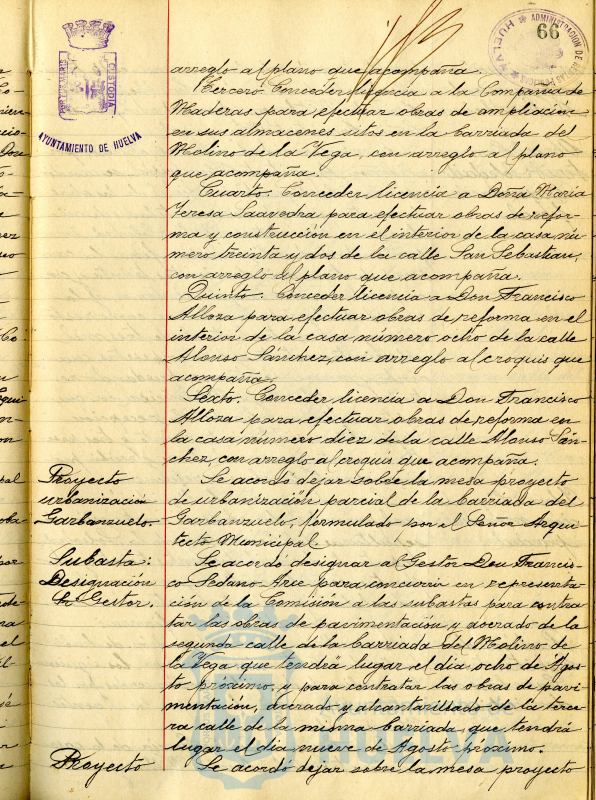 66
HUELVA ADMINISTRACION DE
PORTUS MARIS
CUSTODIA
AYUNTAMIENTO DE HUELVA
arreglo al plano que acompaña.
Tercero. Conceder licencia a la Compañia de
Maderas para efectuar obras de ampliación
en sus almacenes sitos en la barriada del
Molino de la Vega, con arreglo al plano
que acompaña.
Cuarto. Conceder licencia a Doña Maria
Teresa Saavedra para efectuar obras de refor-
ma y construcción en el interior de la casa nú-
mero treinta y dos de la calle San Sebastian,
con arreglo al plano que acompaña.
Quinto. Conceder licencia a Don Francisco
Alloza para efectuar obras de reforma en el
interior de la casa número ocho de la calle
Alonso Sánchez, con arreglo al croquis que
acompaña.
Sexto. Conceder licencia a Don Francisco
Alloza para efectuar obras de reforma en
la casa número diez de la calle Alonso Sán-
chez, con arreglo al croquis que acompaña.
Proyecto
urbanización
Garbanzuelo.
Se acordó dejar sobre la mesa proyecto
de urbanización parcial de la barriada del
Garbanzuelo, formulado por el Señor Arqui-
tecto Municipal.
Subasta:
Designación
de Gestor.
Se acordó designar al Gestor Don Francis-
co Sedano Arce para concurrir en representa-
ción de la Comisión a las subastas para contra-
tar las obras de pavimentación y acerado de la
segunda calle de la barriada del Molino de
la Vega que tendrá lugar el dia ocho de Agos-
to próximo, y para contratar las obras de pavi-
mentación, acerado y alcantarillado de la terce-
ra calle de la misma barriada, que tendrá
lugar el dia nueve de Agosto próximo.
Proyecto
Se acordó dejar sobre la mesa proyecto
HUELVA